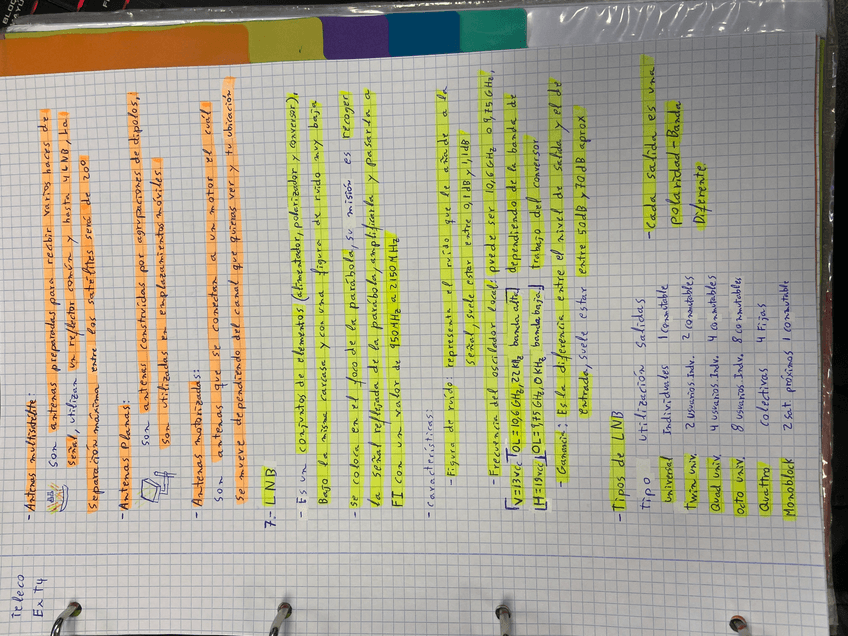 Teleco
Ex T4
- Antenas multisatélite:
son antenas preparadas para recibir varios haces de
señal, utilizan un reflector común y hasta 4 LNB, la
Separación máxima entre los satélites será de 20º
- Antenas planas:
son antenas construidas por agrupaciones de dipolos,
son utilizadas en emplazamientos móviles.
- Antenas motorizadas:
son antenas que se conectan a un motor el cual
se mueve dependiendo del canal que quieras ver y tu ubicación
7.- LNB
- Es un conjuntos de elementos (alimentador, polarizador y conversor),
Bajo la misma carcasa y con una figura de ruido muy baja
- se coloca en el foco de la parábola, su misión es recoger
la señal reflejada de la parábola, amplificarla y pasarla a
FI con un valor de 950MHz a 2150 MHz
- Características:
- Figura de ruido: representa el ruido que le añade a la
señal, suele estar entre 0,1dB y 1,1dB
- Frecuencia del oscilador local: puede ser 10,6 GHz o 9,75 GHz,
[V=13Vcc] [OL=10,6 GHz, 22KHz banda alta] dependiendo de la banda de
[H=19Vcc] [OL=9,75 GHz, 0 KHz banda baja] trabajo del conversor
- Ganancia: Es la diferencia entre el nivel de salida y el de
entrada, suele estar entre 50dB y 70dB aprox.
- Tipos de LNB
Tipo utilización Salidas
universal Individuales 1 conmutable
Twin univ. 2 usuarios Indv. 2 conmutables
Quad univ. 4 usuarios Indv. 4 conmutables
octo univ. 8 usuarios Indv. 8 conmutables
Quattro colectivas 4 Fijas
Monoblock 2 sat. próximos 1 conmutable
- Cada salida es una
polaridad-Banda
Diferente